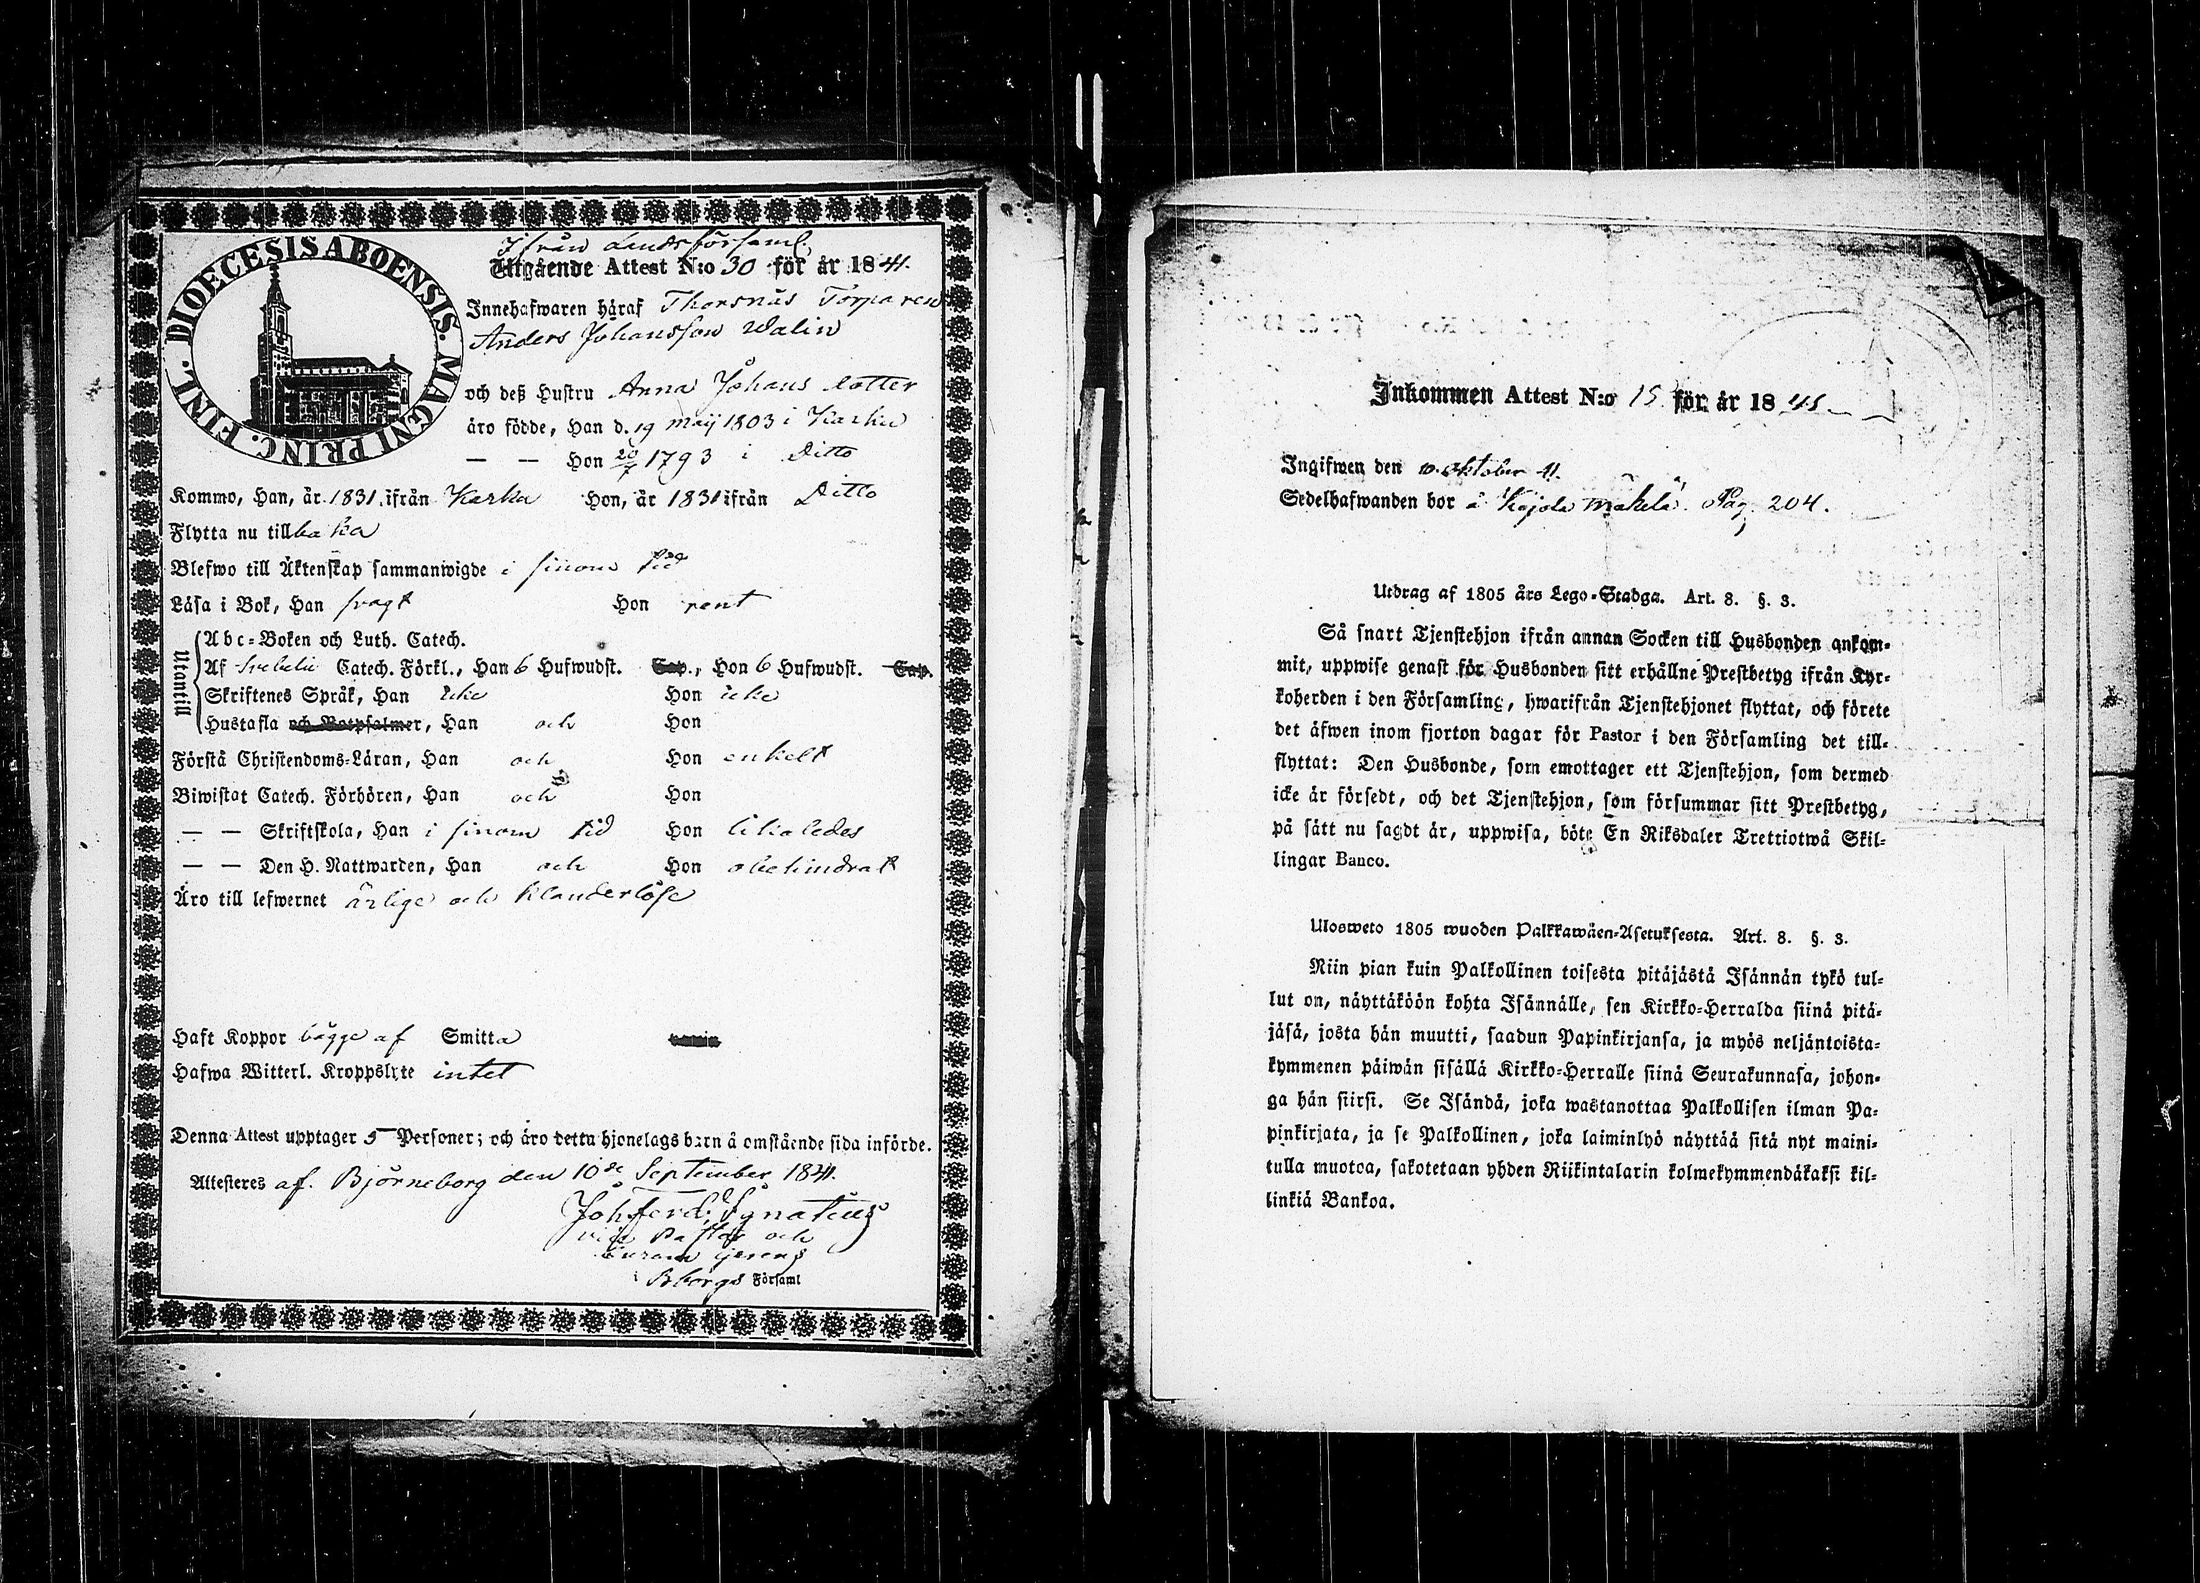 DIOECESIS ABOENSIS. MAGNI PRINC. FINL.
Ifrån Landsförsaml.
Utgående Attest N:o 30 för år 1841.
Innehafwaren häraf Thorsnäs Torparen
Anders Johansson Walin
och deß Hustru Anna Johans dotter
äro födde, Han d. 19 Maij 1803 i Karku
— — Hon 20/7 1793 i Ditto
Kommo, Han, år 1831 ifrån Karku Hon, år 1831 ifrån Ditto
Flytta nu tillbaka
Blefwo till Äktenskap sammanwigde i sinom tid
Läsa i Bok, Han svagt Hon rent
Utantill
Abc-Boken och Luth. Catech.
Af Svebelii Catech. Förkl., Han 6 Hufwudst. Cap., Hon 6 Hufwudst. Cap.
Skriftenes Språk, Han icke Hon icke
Hustafla och Botpsalmer, Han och Hon
Förstå Christendoms-Läran, Han och Hon enkelt
Biwistat Catech. Förhören, Han och Hon
— — Skriftskola, Han i sinom tid Hon likaledes
— — Den H. Nattwarden, Han och Hon obehindrat
Äro till lefwernet ärlige och klanderlöse
Haft Koppor bägge af Smitta
Hafwa Witterl. Kroppslyte intet
Denna Attest upptager 5 Personer; och äro detta hjonelags barn å omstående sida införde.
Attesteres af. Björneborg den 10de September 1841.
Joh Ferd. Ignatius
vice Pastor och
Curam gerens
i Bborgs Församl
Inkommen Attest N:o 15 för år 1841
Ingifwen den 10 oktober 41.
Sedelhafwanden bor å Kojola Mäkelä. Pag. 204.
Utdrag af 1805 års Lego-Stadga. Art. 8. §. 3.
Så snart Tjenstehjon ifrån annan Socken till Husbonden ankom-
mit, uppwise genast för Husbonden sitt erhållne Prestbetyg ifrån Kyr-
koherden i den Församling, hwarifrån Tjenstehjonet flyttat, och förete
det äfwen inom fjorton dagar för Pastor i den Församling det till-
flyttat: Den Husbonde, som emottager ett Tjenstehjon, som dermed
icke är försedt, och det Tjenstehjon, som försummar sitt Prestbetyg,
på sätt nu sagdt är, uppwisa, böte En Riksdaler Trettiotwå Skil-
lingar Banco.
Ulosweto 1805 wuoden Palkkawäen-Asetuksesta. Art. 8. §. 3.
Niin pian kuin Palkollinen toisesta pitäjästä Isännän tykö tul-
lut on, näyttäköön kohta Isännälle, sen Kirkko-Herralda siinä pitä-
jäsä, josta hän muutti, saadun Papinkirjansa, ja myös neljäntoista-
kymmenen päiwän sisällä Kirkko-Herralle siinä Seurakunnasa, johon-
ga hän siirsi. Se Isändä, joka wastanottaa Palkollisen ilman Pa-
pinkirjata, ja se Palkollinen, joka laiminlyö näyttää sitä nyt maini-
tulla muotoa, sakotetaan yhden Riikintalarin kolmekymmendäkaksi kil-
linkiä Bankoa.